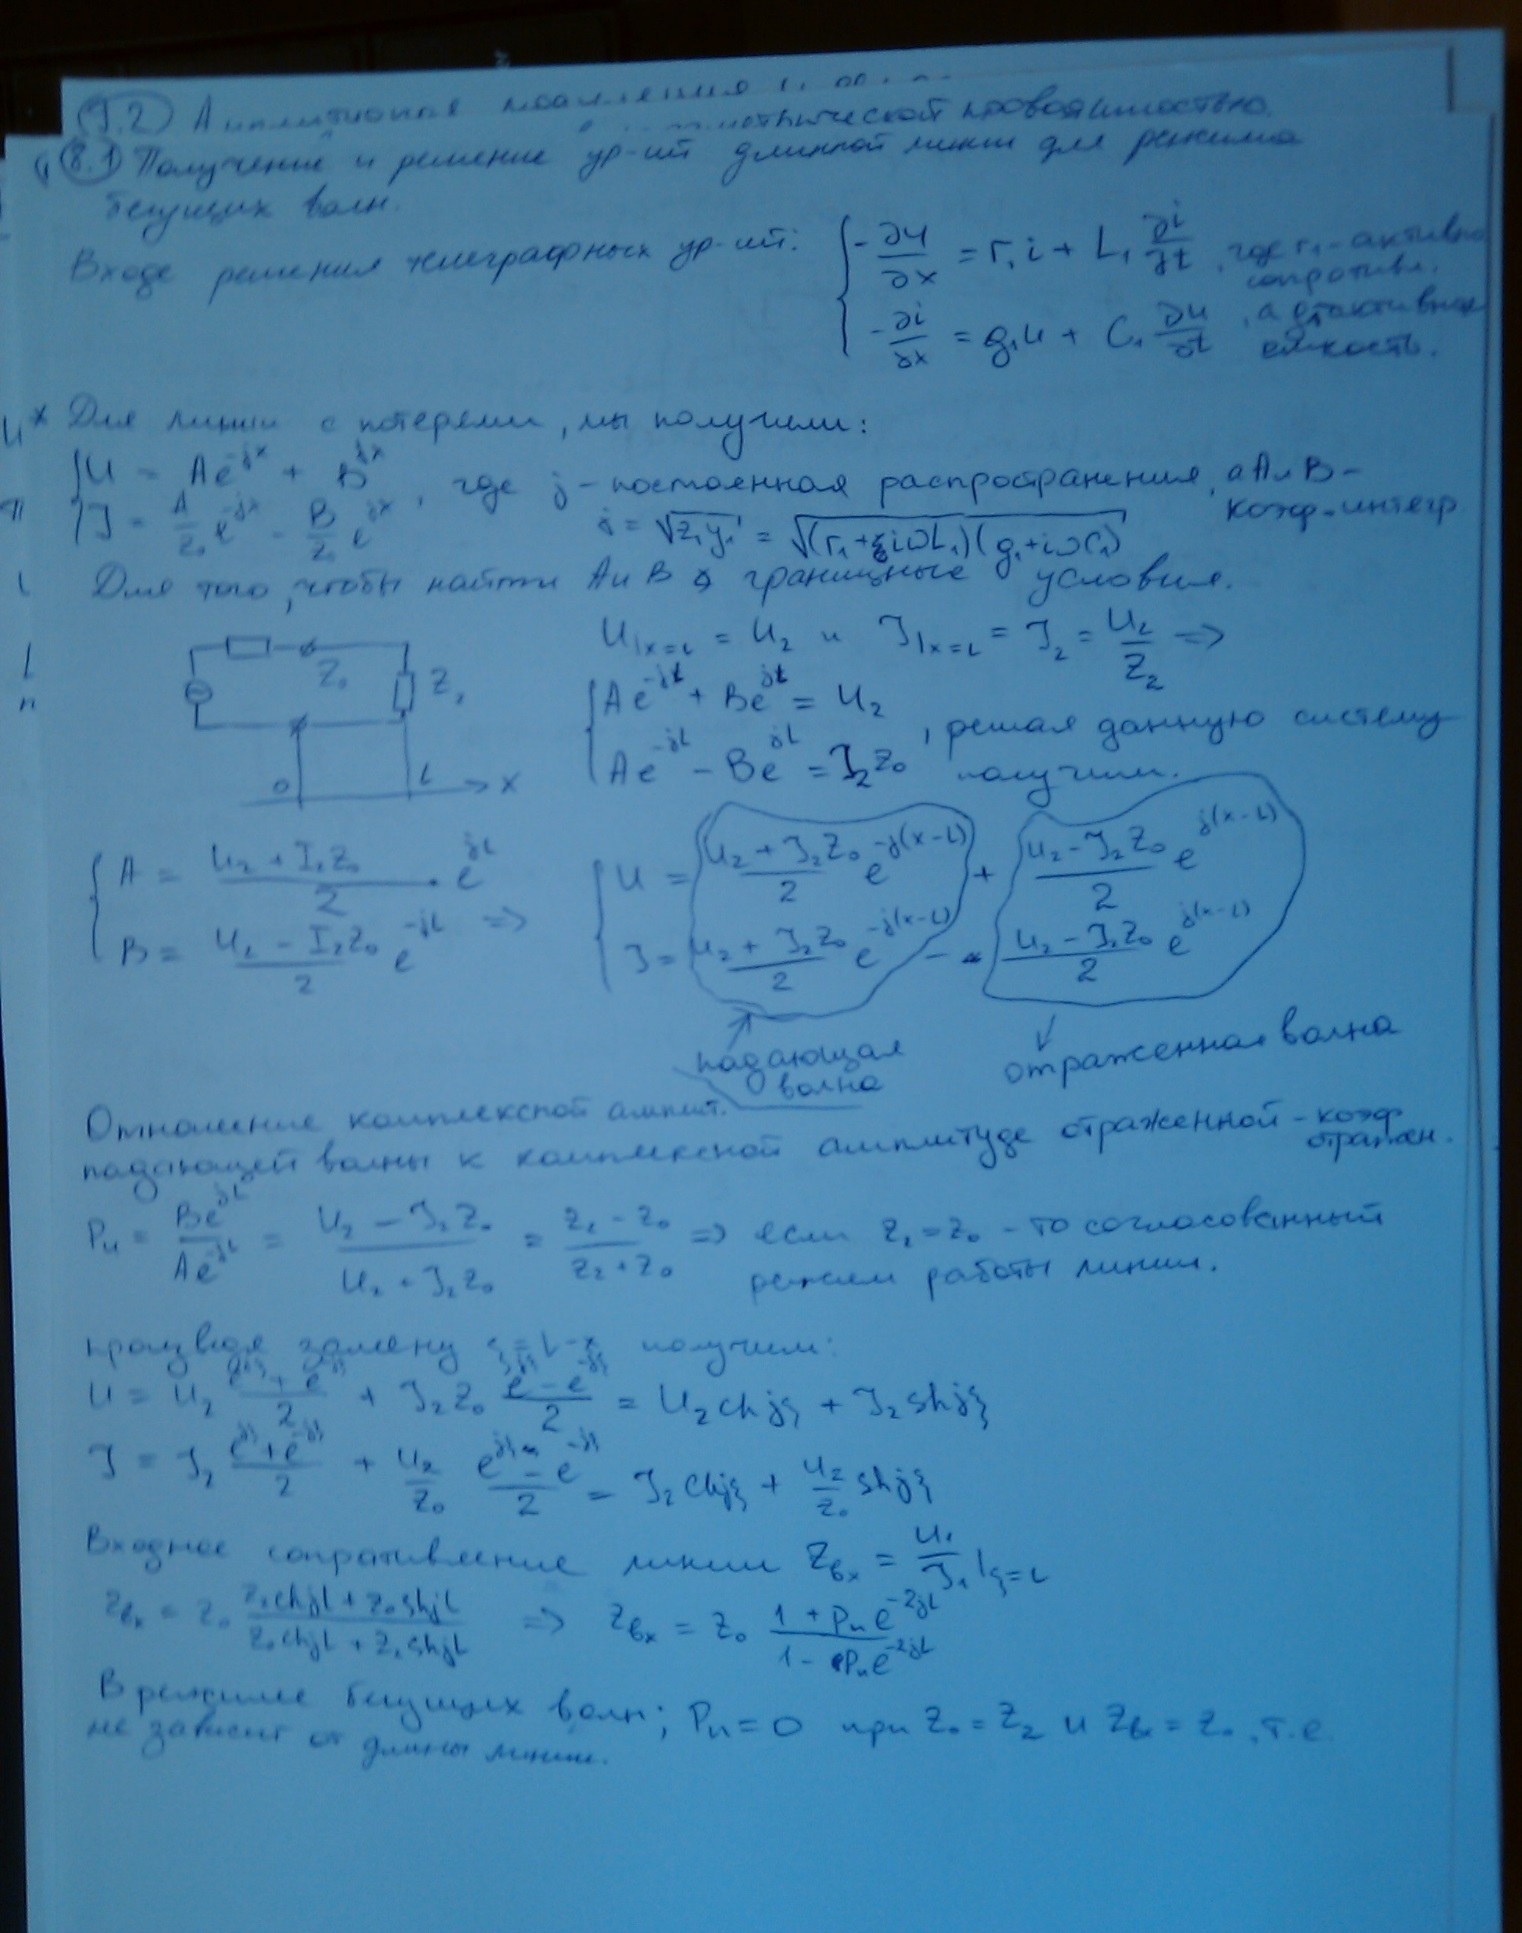 9.2
метрической проводимостью
8.1 Получение и решение ур-ий длинной линии для режима
бегущих волн.
В ходе решения телеграфных ур-ий: { -∂u/∂x = r₁i + L₁ ∂i/∂t , где r₁ - активно
сопротивл.
-∂i/∂x = g₁u + C₁ ∂u/∂t , а
емкость.
* Для линии с потерями, мы получили:
{ U = Ae^-jx + B^jx
J = A/Z₀ e^-jx - B/Z₀ e^jx , где j - постоянная распространения, а A и B -
коэф. интегр
j = √Z₁y₁ = √(r₁+iωL₁)(g₁+iωC₁)
Для того, чтобы найти A и B граничные условия.
U|x=L = U₂ и J|x=L = J₂ = U₂/Z₂ =>
Z₀ Z₁
0 L x
{ Ae^-jL + Be^jL = U₂
Ae^-jL - Be^jL = J₂Z₀ , решая данную систему
получим.
{ A = (U₂ + J₂Z₀)/2 · e^jL
B = (U₂ - J₂Z₀)/2 e^-jL =>
{ U = (U₂ + J₂Z₀)/2 e^-j(x-L) + (U₂ - J₂Z₀)/2 e^j(x-L)
J = (U₂ + J₂Z₀)/2 e^-j(x-L) - (U₂ - J₂Z₀)/2 e^j(x-L)
падающая
волна
отраженная волна
Отношение комплексной амплит.
падающей волны к комплексной амплитуде отраженной - коэф
отражен.
Pu = Be^jL/Ae^-jL = (U₂ - J₂Z₀)/(U₂ + J₂Z₀) = (Z₂ - Z₀)/(Z₂ + Z₀) => если Z₂ = Z₀ - то согласованный
режим работы линии.
произведя замену ξ = L-x получим:
U = U₂ (e^jξ + e^-jξ)/2 + J₂Z₀ (e^jξ - e^-jξ)/2 = U₂chjξ + J₂shjξ
J = J₂ (e^jξ + e^-jξ)/2 + U₂/Z₀ (e^jξ - e^-jξ)/2 = J₂chjξ + U₂/Z₀ shjξ
Входное сопративление линии Zвх = U₁/J₁ |ξ=L
Zвх = Z₀ (Z₂chjL + Z₀shjL)/(Z₀chjL + Z₂shjL) => Zвх = Z₀ (1 + Pue^-2jL)/(1 - Pue^-2jL)
В режиме бегущих волн; Pu = 0 при Z₀ = Z₂ и Zвх = Z₀, т.е.
не зависит от длины линии.